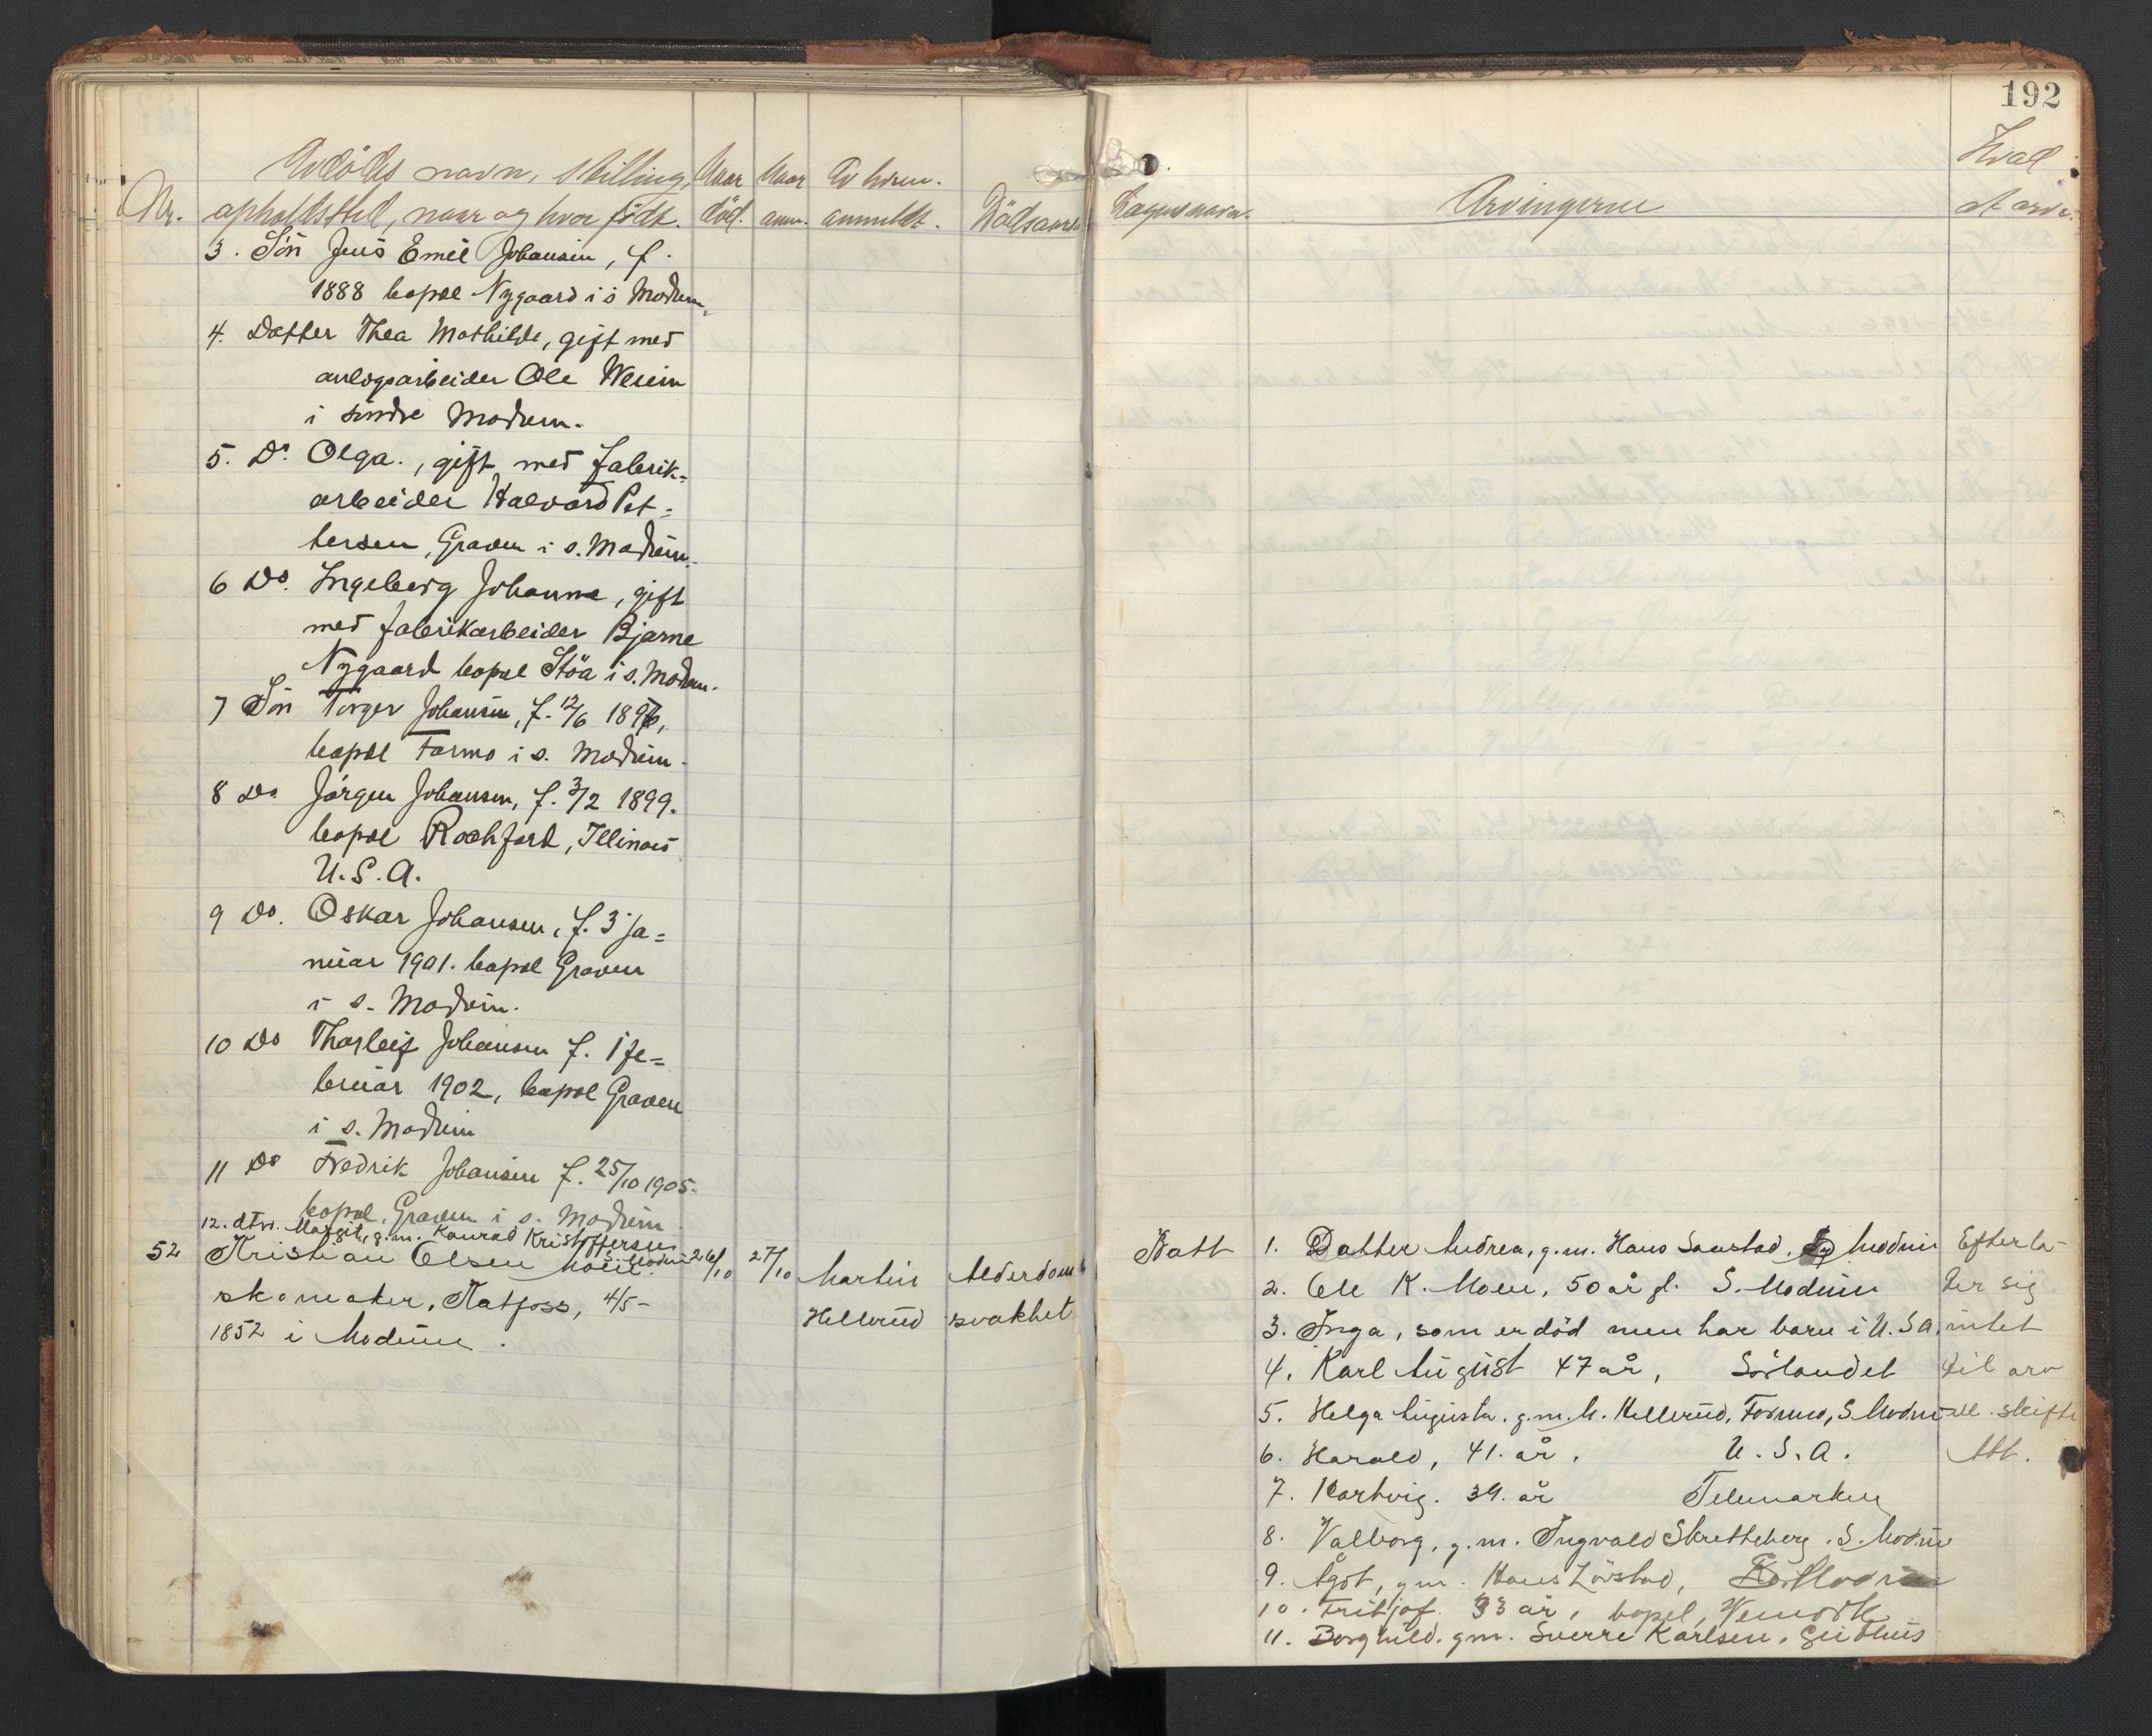 192
Avdødes navn, stilling,
Naar
Naar
Av hvem.
Hvad
Nr.
opholdssted, naar og hvor født.
død.
anm.
anmeldt.
Dödsaars
Lægens navn.
Arvingerne
at arve.
3. Sön Jens Emil Johansen, f.
1888 bopæl Nygaard i s Modum,
4. Datter Thea Mathilde, gift med
anlegsarbeider Ole
i söndre Modum.
5. Do. Olga., gift med fabrik=
arbeider Halvard Pet=
tersen, Graven i s. Modum.
6 Do. Ingeborg Johanne, gift
med fabrikarbeider Bjarne
Nygaard bopæl Stöa i s. Modum.
7 Sön Torger Johansen, f. 12/6 1896,
bopæl Formo i s. Modum.
8 Do Jörgen Johansen, f. 3/2 1899.
bopæl Rochford, Illinois
U.S.A.
9 Do. Oskar Johansen, f. 3 ja=
nuar 1901. bopæl Graven
i s. Modum.
10 Do Thorleif Johansen f. 1 fe=
bruar 1902, bopæl Graven
i s. Modum
11 Do Fredrik Johansen f. 25/10 1905.
bopæl, Graven i s. Modum.
12. dtr. Margit, g.m. Konrad Kristoffersen
S. Modum
52 Kristian Olsen Moen.
26/10
27/10
Martin
Alderdoms
skomaker, Katfoss, 4/5-
Hellerud
svakhet
1852 i Modum.
Batt
1. Datter Andrea, g.m. Hans Saastad, Modum
Efterla-
2. Ole K. Moen, 50 år gl. S. Modum
ter sig
3. Inga, som er död men har barn i U.S.A.
intet
4. Karl August 47 år, Sörlandet
til arv
5. Helga Augusta. g.m. M. Hellerud, Formo, S. Modum
ell. skifte
6. Harald, 41. år. U.S.A.
Att.
7. Hartvig. 39. år Telemarken
8. Valborg, g.m. Ingvald Skretteberg. S. Modum
9. Ågot, g.m. Hans Lövstad, Modum
10. Fritjof. 33 år, bopel, Vemork
11. Borghild. g.m. Sverre Karlsen,